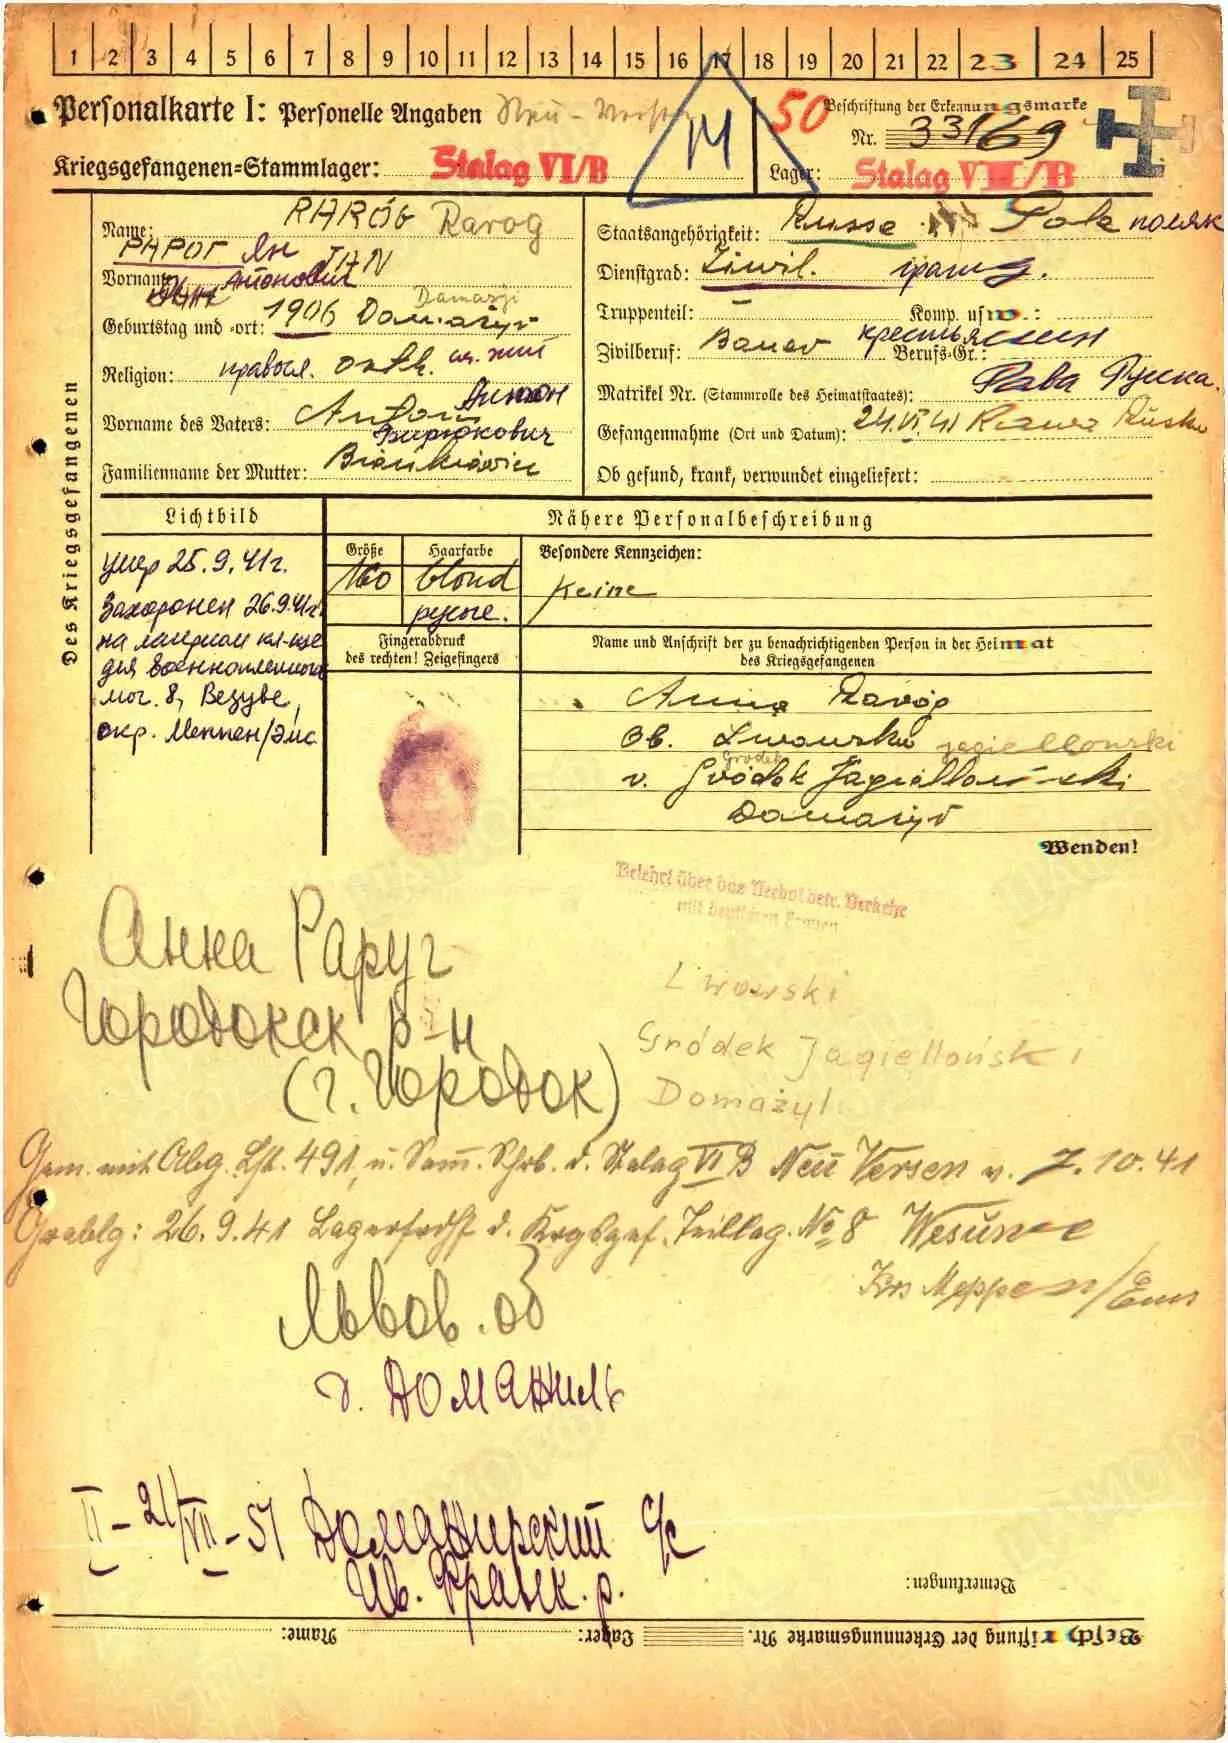 1 2 3 4 5 6 7 8 9 10 11 12 13 14 15 16 17 18 19 20 21 22 23 24 25
Personalkarte I: Personelle Angaben Neu-
50 Beschriftung der Erkennungsmarke
Nr. 33169
M
Kriegsgefangenen=Stammlager: Stalag VI/B
Lager: Stalag
Des Kriegsgefangenen
Name: RARÓG Rarog
РАРОГ Ян
Vorname: JAN
Антонович
Geburtstag und -ort: 1906 Domażyr
Religion: правосл. orth.
Vorname des Vaters: Anton Антон
Familienname der Mutter:
Бирюкович
Staatsangehörigkeit: Russe Pole поляк
Dienstgrad: Ziwil. гражд.
Truppenteil: — Komp. usw.:
Zivilberuf: Bauer крестьянин
Berufs-Gr.:
Matrikel Nr. (Stammrolle des Heimatstaates): Рава Руска.
Gefangennahme (Ort und Datum): 24.VI.41 Rawa Ruska
Ob gesund, krank, verwundet eingeliefert:
Lichtbild
умер 25.9.41г.
Захоронен 26.9.41г.
на лагерном кл-ще
для военнопленных
мог. 8, Везуве,
окр. Меппен/Эмс.
Nähere Personalbeschreibung
Größe Haarfarbe Besondere Kennzeichen:
160 blond keine
русые.
Fingerabdruck
des rechten! Zeigefingers
Name und Anschrift der zu benachrichtigenden Person in der Heimat
des Kriegsgefangenen
Anna Raróg
Ob. Lwowski jagiellonski
Grodek
v. Gródek Jagielloński
Domażyr
Wenden!
Belehrt über das Verbot betr. Verkehr
mit deutschen Frauen
Анна Раруг
Городокск р-н
(г. Городок)
Lwowski
Gródek Jagielloński
Domażyl
Gem. mit Abg. Lst. 491, u. Schrb. d. Stalag VI B Neu Versen v. 7.10.41
Grablg: 26.9.41 Lagerfrdhf d. Krgsgef. Teillag. No 8 Wesuwe
Krs Meppen/Ems
Львов. об
д. Домажиль
II-21/VII-51 Домажирский с/с
Ив. Франк. р.
Bemerkungen:
Beschriftung der Erkennungsmarke Nr. Lager: Name: